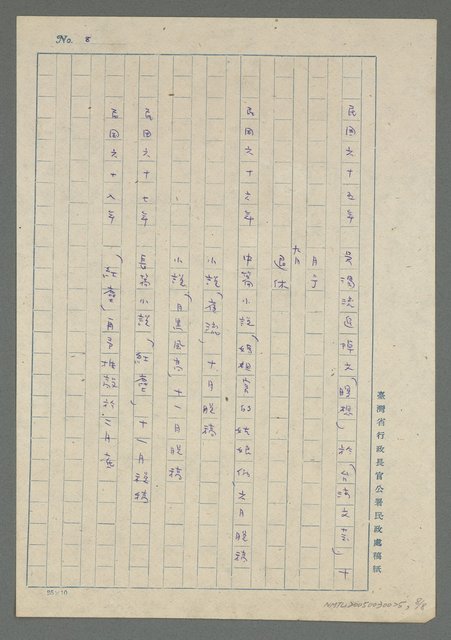 No. 8
臺灣省行政長官公署民政處稿紙
民國六十五年 吳濁流追悼文「瞑想」於「台湾文芸」十
月刊
九月
退休
民國六十六年 中篇小說「媽祖宮的姑娘們」六月脫稿
小說「夜流」十月脫稿
小說「月黑風高」十一月脫稿
民國六十七年 長篇小說「紅塵」十一月脫稿
民國六十八年 「紅塵」再予推敲於二月完
25×10
NMTL20050030025, 8/8